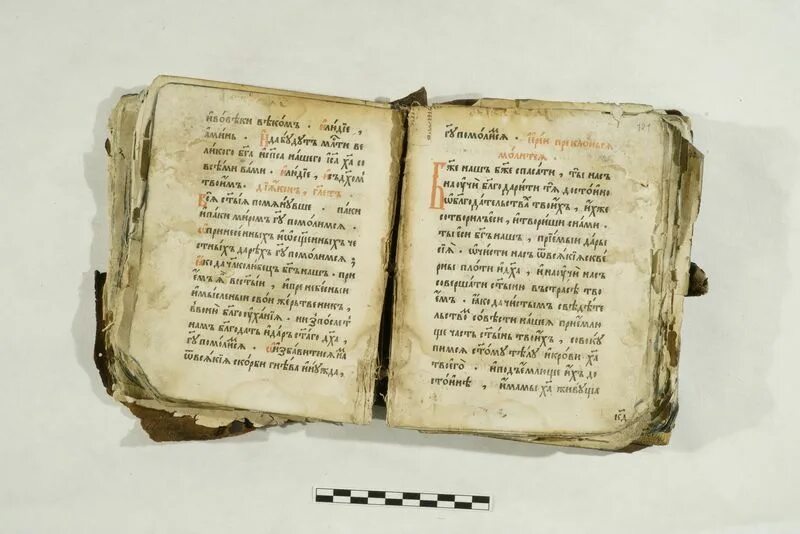 ивовѣки вѣкомъ. людїе,
аминь. Идабудутъ млⷭ҇ти ве
ликого бг҃а испса нашего іс҃а хⷭ҇а со
всѣми вами. людїе, сдх҃омъ
твоимъ. дїякон, гл҃етъ.
Вся ст҃ыя помянувше. паки
ипаки миромъ гдⷭ҇у помолимся.
принесенныхъ иѡсщ҃енныхъ че
стныхъ дарехъ гдⷭ҇у помолимся,
Якода чл҃колюбецъ бг҃ъ нашъ. при
емъ я вст҃ыи, ипренебесныи
имысленыи свои жертвеникъ,
ввоню бл҃гоуханїя. низпослетъ
намъ благодать идаръ ст҃аго дх҃а,
гдⷭ҇у помолимся. ѡизбавитися на
ѿвсякїя скорби гнѣва инужда,
гдⷭ҇у помолимся. При преклоньшася
молитвѧ.
Бж҃е нашъ бж҃е спасати, ты насъ
научи бл҃годарити тя достоино
ѡблагодательствахъ твоихъ, ихже
сотворилъеси, итвориши снами.
ты еси бг҃ъ нашъ, прїемыи дары
сїя. ѡчисти насъ ѿвсякїя скве
рны плоти идх҃а, инаучи насъ
совершати ст҃ыню встрасѣ тво
емъ. якода чистымъ свѣдѣте
льствомъ совѣсти нашея прїемлю
ще часть ст҃ынь твоихъ, совоку
пимся ст҃ому тѣлу икрови хⷭ҇а
твоего. иподъемлюще ихъ до
стоинѣ, имамы хⷭ҇а живуща